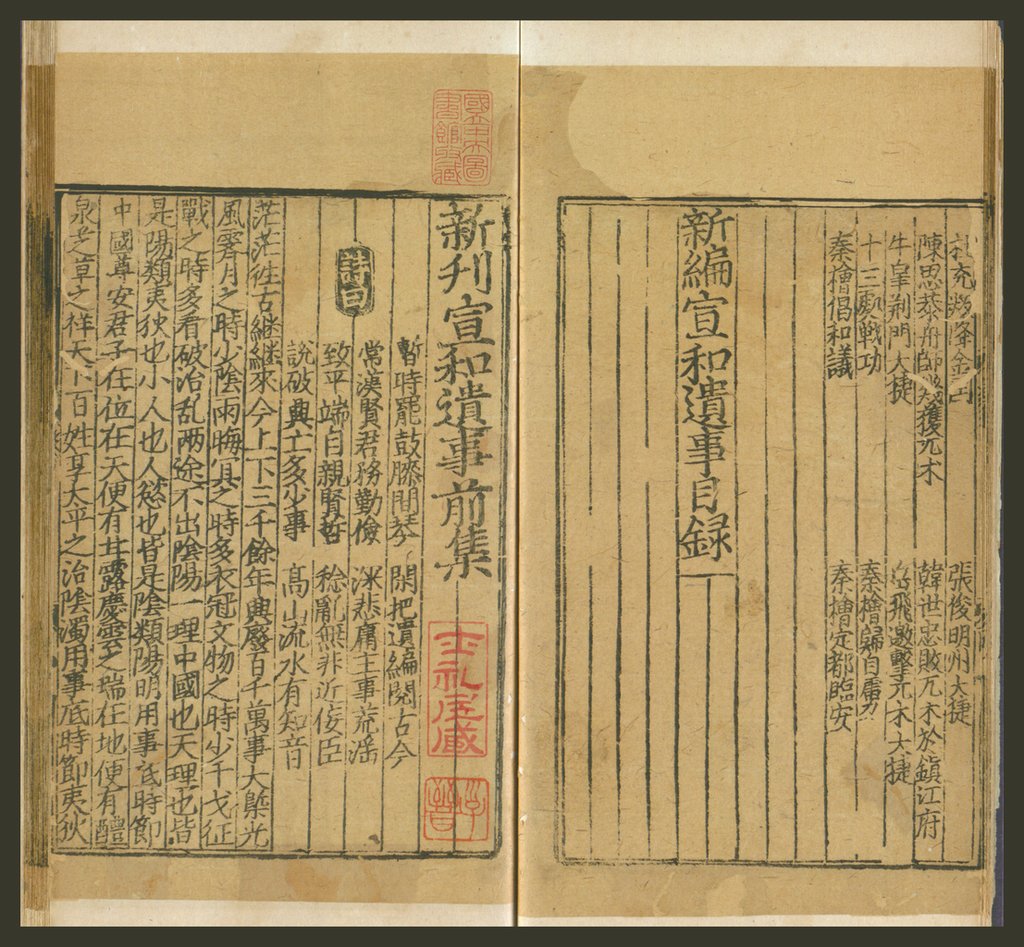 張俊明州大捷
陳思恭舟師獲兀术 韓世忠敗兀术於鎮江府
牛皋荆門大捷 岳飛邀擊兀术大捷
十三處戰功 秦檜歸自虜
秦檜倡和議 秦檜定都臨安
新編宣和遺事目録
國立中央圖書館收藏
新刋宣和遺事前集
士礼居藏
暫時罷鼓膝間琴 閑把遺編閱古今
常漢賢君務勤儉 深悲庸主事荒滛
詩曰
致平端自親賢哲 稔亂無非近佞臣
說破興亡多少事 高山流水有知音
茫茫徃古継継來今上下三千餘年興廢百千萬事大槩光
風霽月之時少陰雨晦冥之時多衣冠文物之時少干戈征
戰之時多看破治乱兩途不出陰陽一理中國也天理也皆
是陽類夷狄也小人也人慾也皆是陰類陽明用事底時節
中國尊安君子在位在天便有甘露慶雲之瑞在地便有醴
泉芝草之祥天下百姓享太平之治陰濁用事底時節夷狄